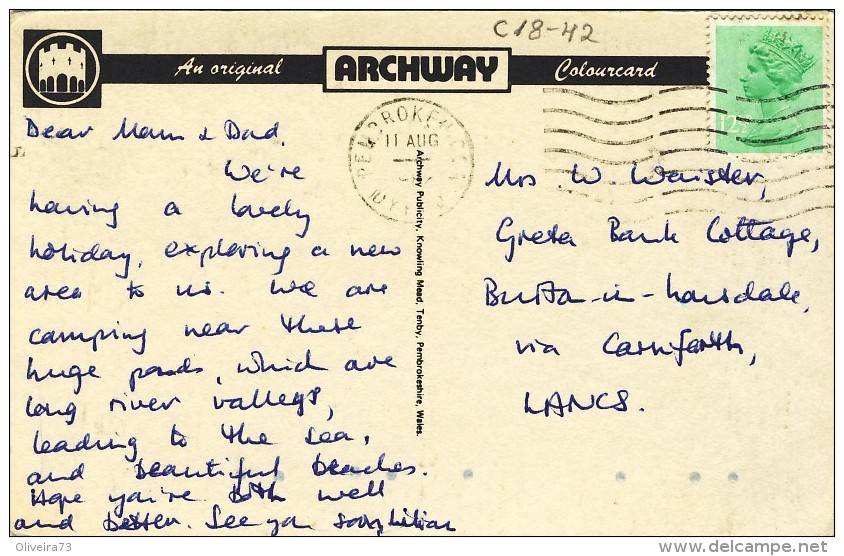 C18-42
An original ARCHWAY Colourcard
PEMBROKESHIRE
11 AUG
12½
Dear Mam & Dad,
We're
having a lovely
holiday, exploring a new
area to us. We are
camping near these
huge ponds, which are
long river valleys,
leading to the sea,
and beautiful beaches.
Hope you're both well
and better. See you soon, Lilian
Archway Publicity, Knowling Mead, Tenby, Pembrokeshire, Wales.
Mrs W. Waister,
Greta Bank Cottage,
Burton-in-Lonsdale,
via Carnforth,
LANCS.
Oliveira73
www.delcampe.net